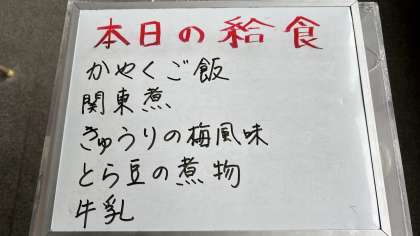 本日の給食
かやくご飯
関東煮
きゅうりの梅風味
とら豆の煮物
牛乳